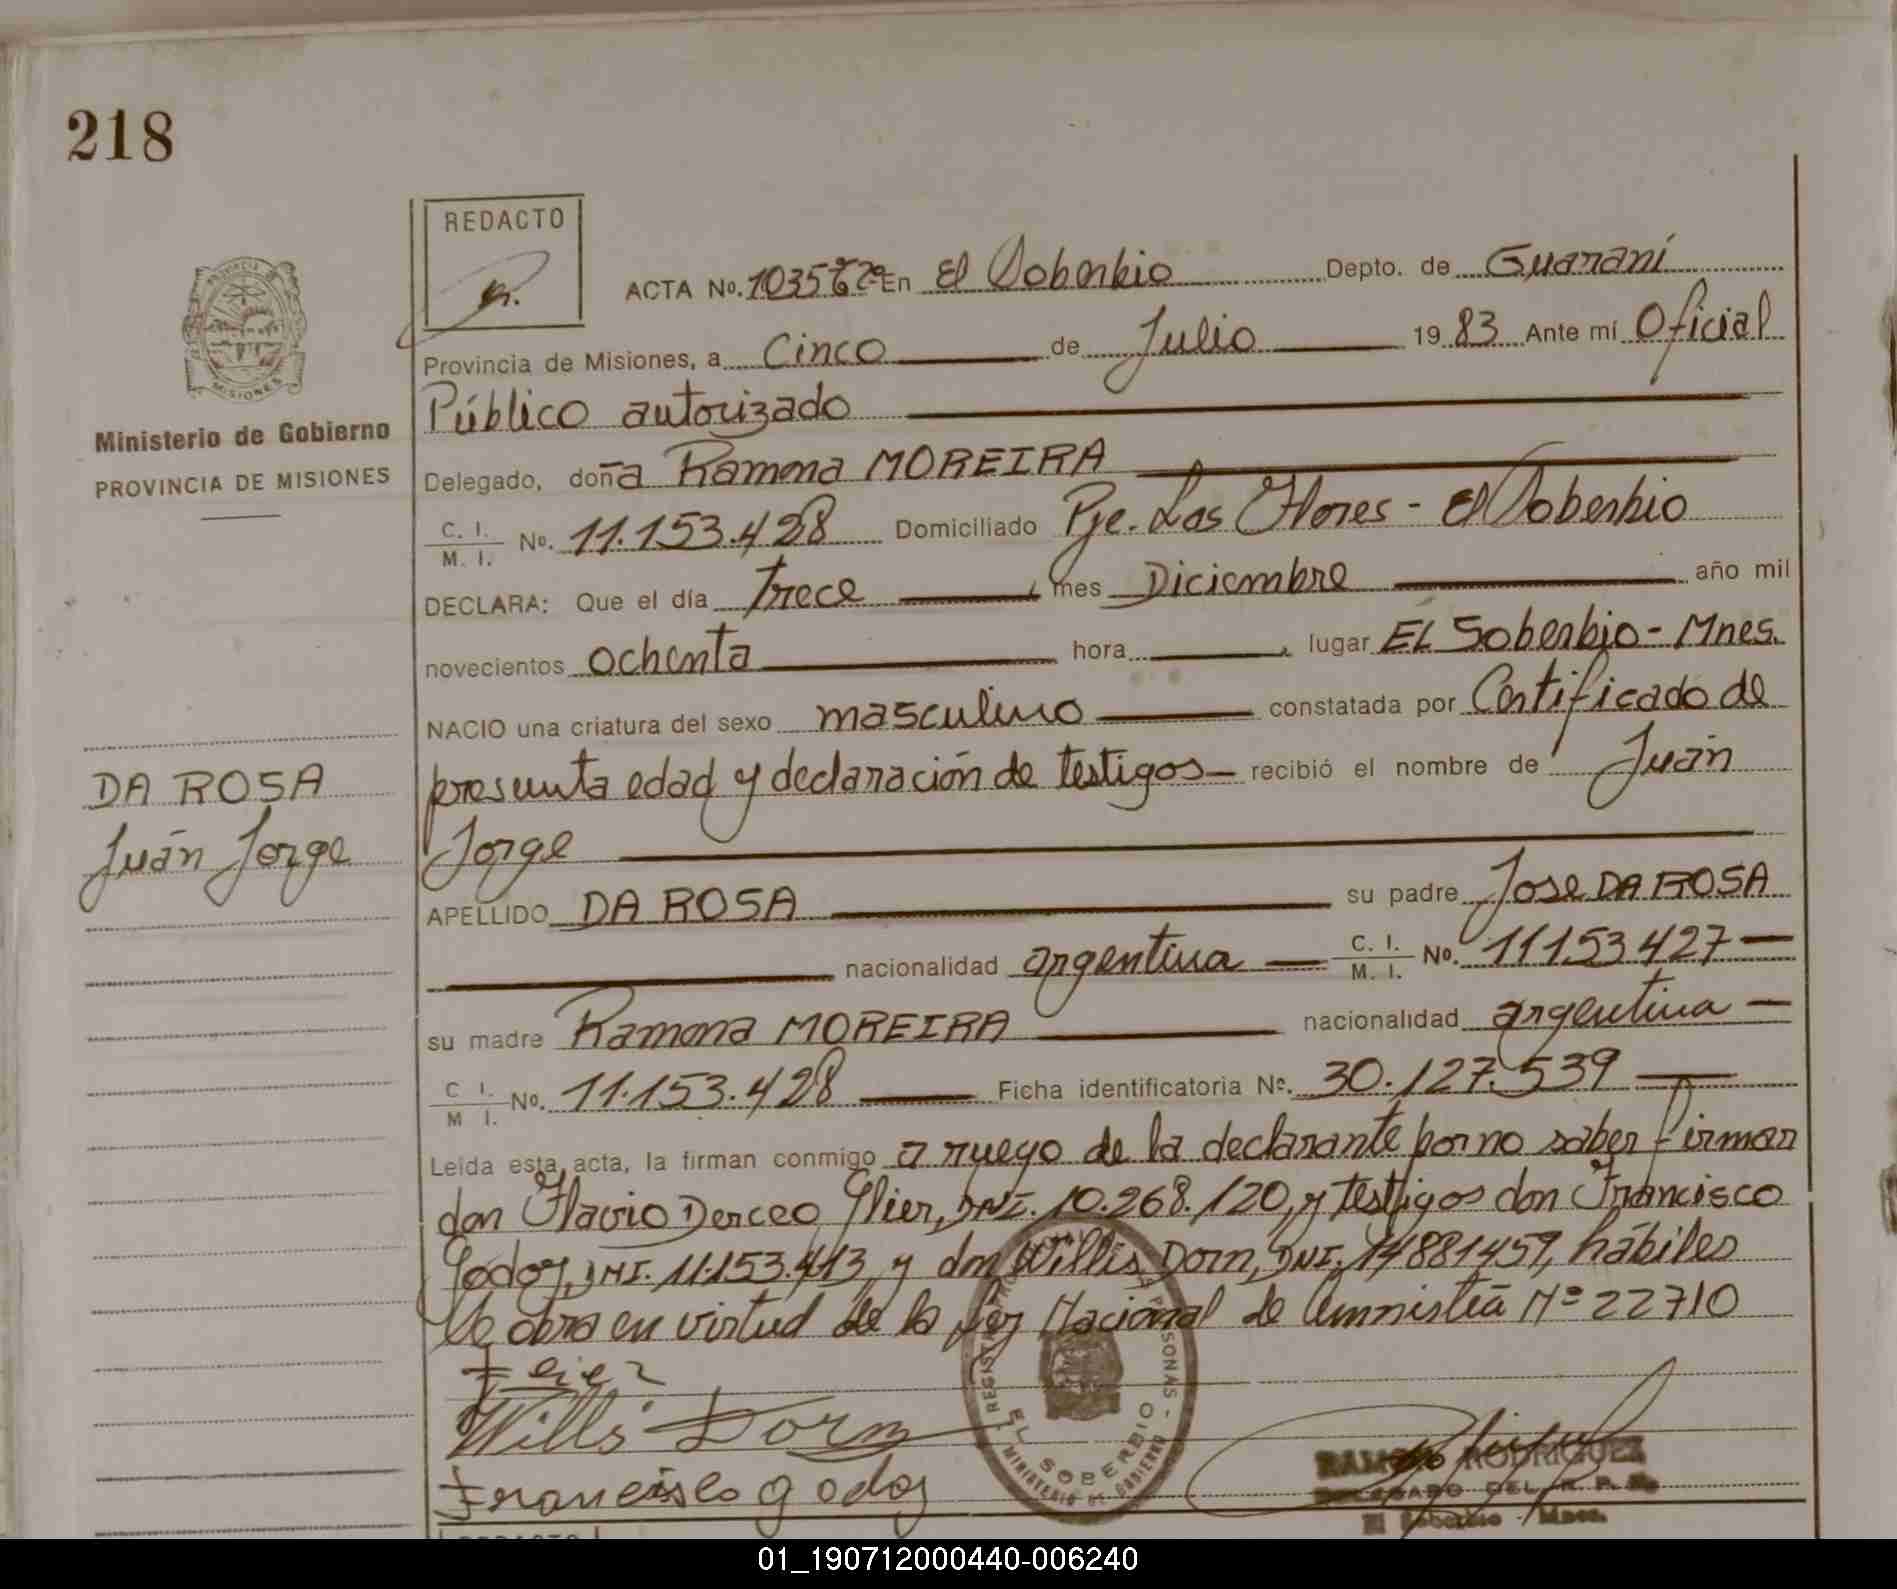 218
REDACTO
ACTA No. 1035 Tº 2º En El Soberbio Depto. de Guaraní
Provincia de Misiones, a Cinco de Julio 1983 Ante mí Oficial
Público autorizado
Ministerio de Gobierno
PROVINCIA DE MISIONES
Delegado, doña Ramona MOREIRA
C. I. / M. I. No. 11.153.428 Domiciliado Pje. Las Flores - El Soberbio
DECLARA: Que el día trece, mes Diciembre año mil
novecientos ochenta hora, lugar EL Soberbio - Mnes.
NACIO una criatura del sexo masculino constatada por Certificado de
presunta edad y declaración de testigos recibió el nombre de Juan
DA ROSA
Juan Jorge
Jorge
APELLIDO DA ROSA su padre Jose DA ROSA
nacionalidad argentina C. I. / M. I. No. 11153427
su madre Ramona MOREIRA nacionalidad argentina
C I. / M I. No. 11.153.428 Ficha identificatoria No. 30.127.539
Leída esta acta, la firman conmigo a ruego de la declarante por no saber firmar
don Flavio Derceo Glier, DNI. 10.268.120, y testigos don Francisco
Godoy, DNI. 11.153.413, y don Willis Dorn, DNI. 14881459, hábiles
Se obra en virtud de la Ley Nacional de Amnistía Nº 22710
Willi Dorn
Francisco godoy
EL SOBERBIO
MINISTERIO DE GOBIERNO
RAMON RODRIGUEZ
DELEGADO DEL R. P. P.
El Soberbio - Mnes.
REDACTO
01_190712000440-006240